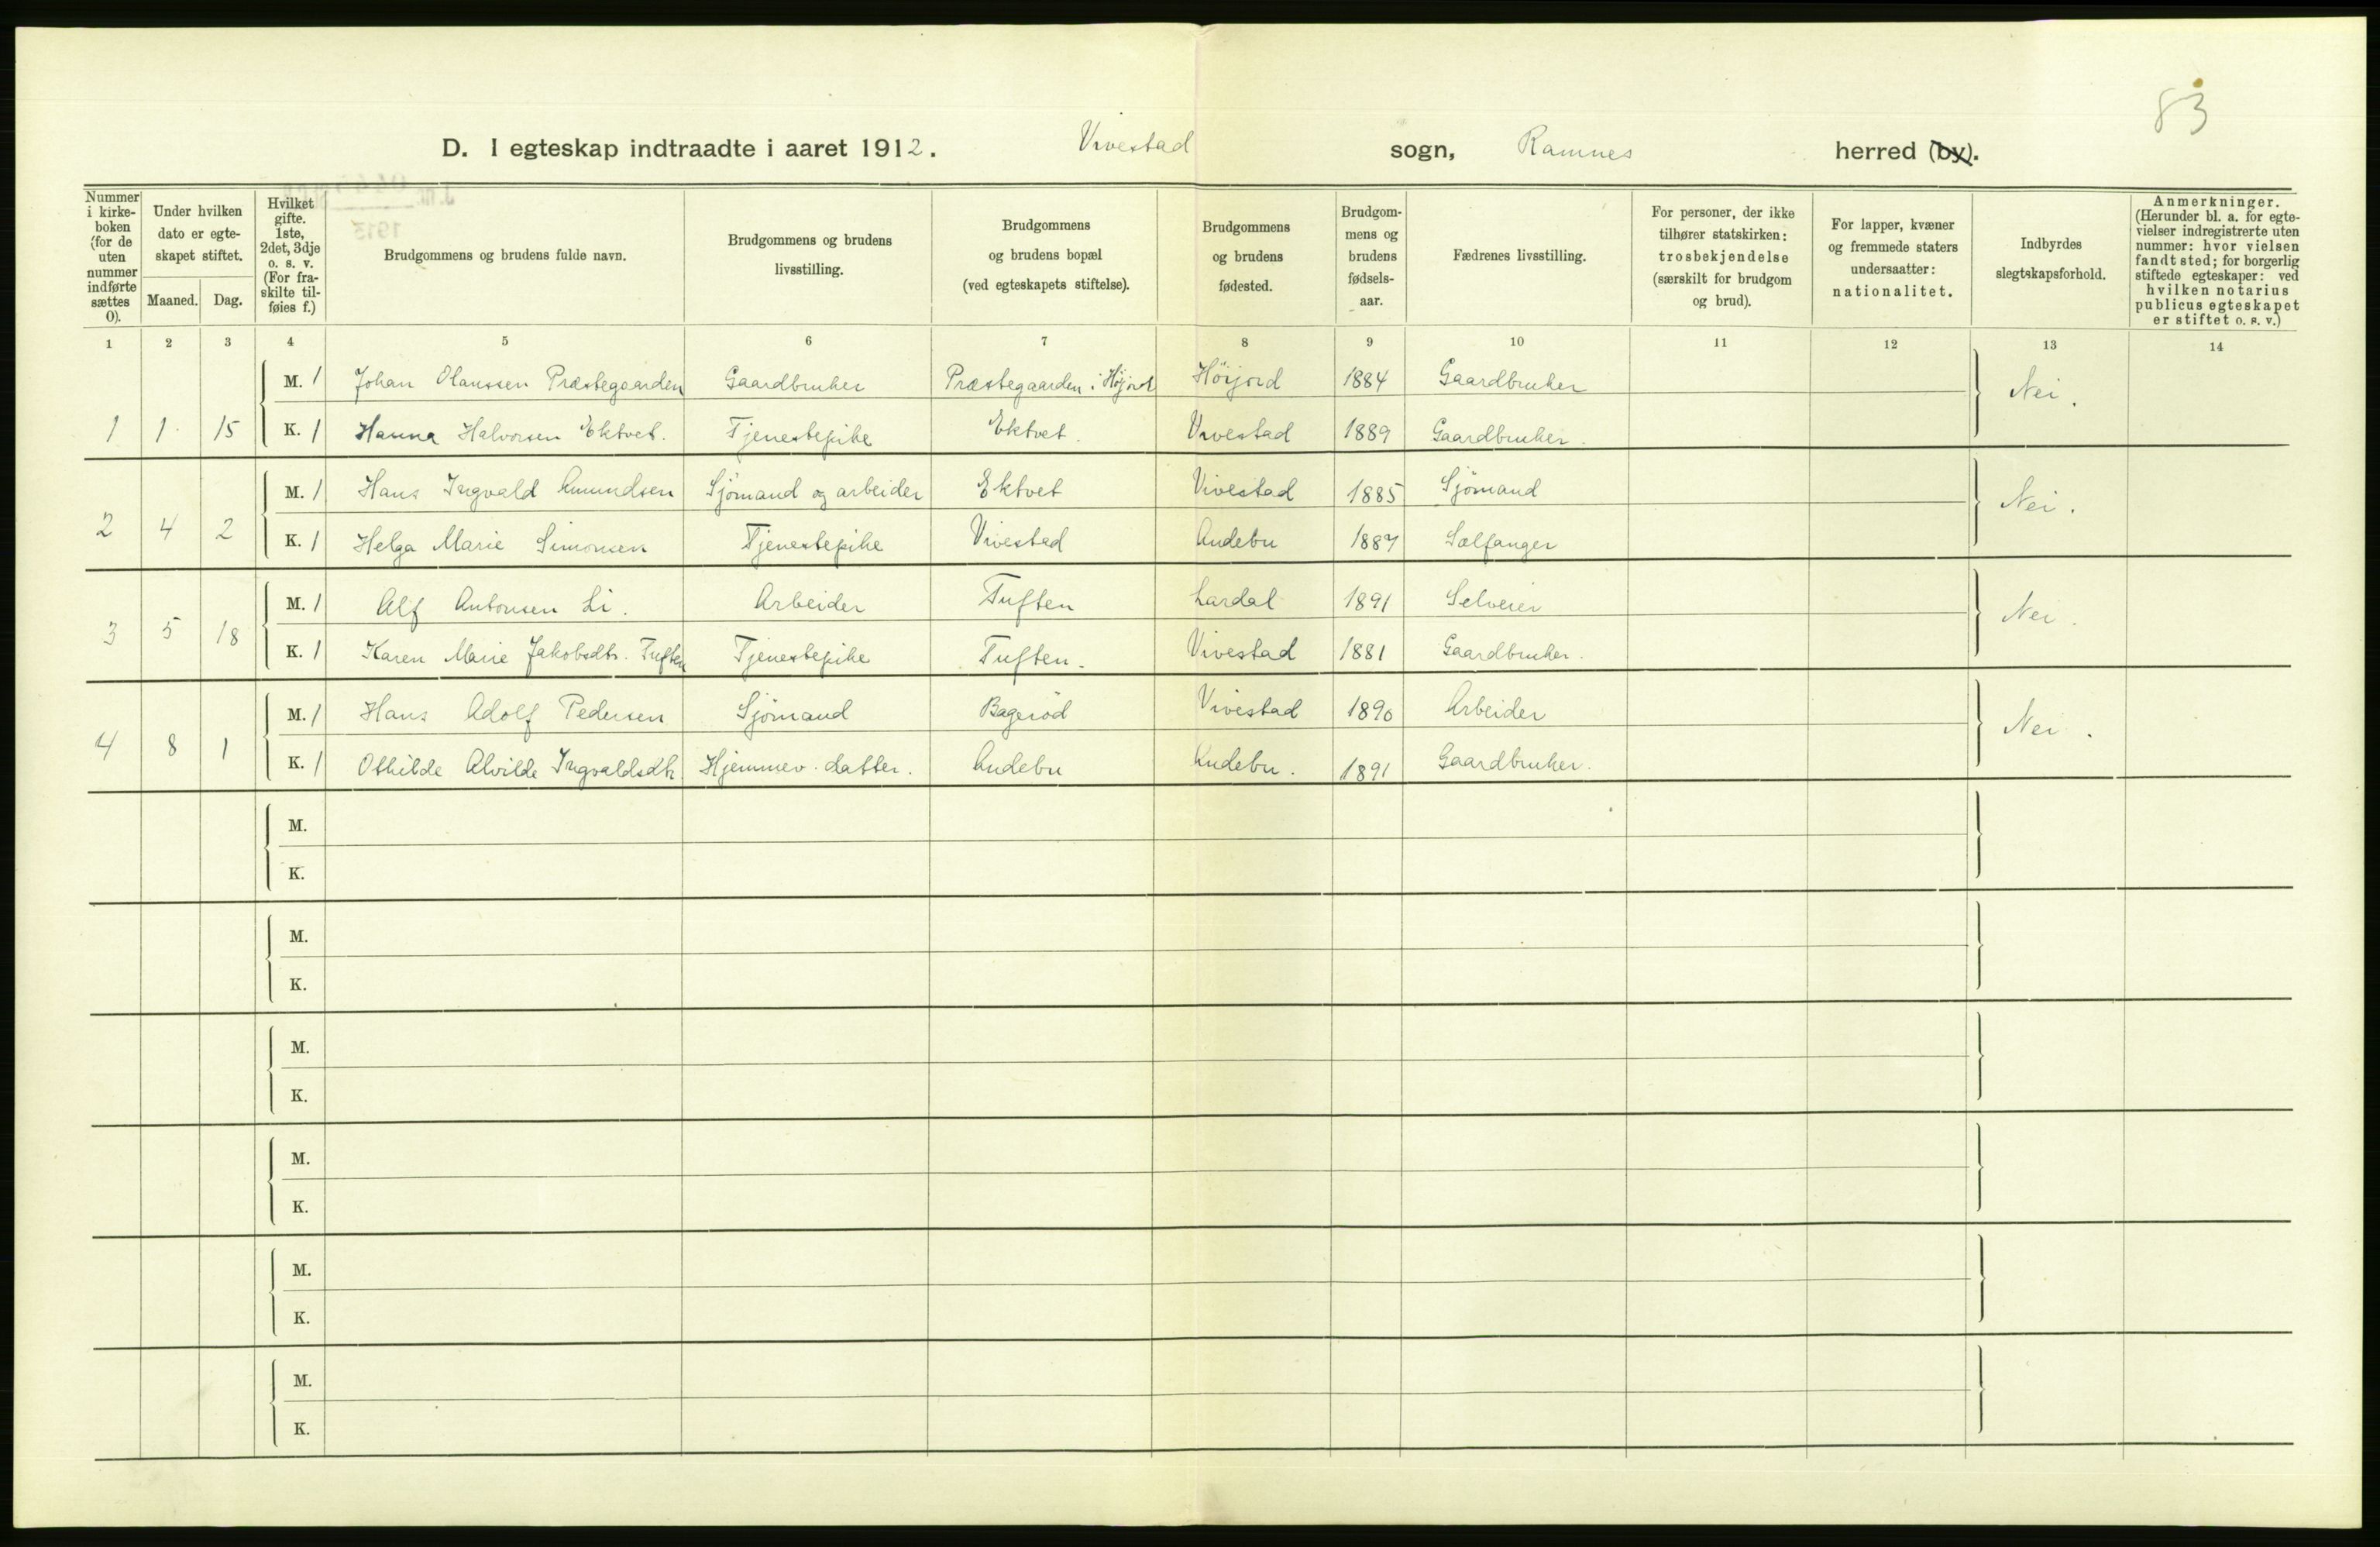 83
D. I egteskap indtraadte i aaret 1912. Vivestad sogn, Ramnes herred (by).
Nummer i kirke-boken (for de uten nummer indførte sættes 0).
Under hvilken dato er egte-skapet stiftet.
Maaned. Dag.
Hvilket gifte. 1ste, 2det, 3dje o. s. v. (For fra-skilte til-føies f.)
Brudgommens og brudens fulde navn.
Brudgommens og brudens livsstilling.
Brudgommens og brudens bopæl (ved egteskapets stiftelse).
Brudgommens og brudens fødested.
Brudgom-mens og brudens fødsels-aar.
Fædrenes livsstilling.
For personer, der ikke tilhører statskirken: trosbekjendelse (særskilt for brudgom og brud).
For lapper, kvæner og fremmede staters undersaatter: nationalitet.
Indbyrdes slegtskapsforhold.
Anmerkninger. (Herunder bl. a. for egte-vielser indregistrerte uten nummer: hvor vielsen fandt sted; for borgerlig stiftede egteskaper: ved hvilken notarius publicus egteskapet er stiftet o. s. v.)
1 2 3 4 5 6 7 8 9 10 11 12 13 14
M. 1 Johan Olaussen Præstegaarden Gaardbruker Præstegaarden i Höjord Höijord 1884 Gaardbruker Nei.
1 1 15 K. 1 Hanna Halvorsen Ektvet. Tjenestepike Ektvet. Vivestad 1889 Gaardbruker.
M. 1 Hans Ingvald Amundsen Sjömand og arbeider Ektvet Vivestad 1885 Sjömand Nei.
2 4 2 K. 1 Helga Marie Simonsen Tjenestepike Vivestad Andebu 1887 Sælfanger
M. 1 Alf Antonsen Li. Arbeider Tuften Lardal 1891 Selveier Nei.
3 5 18 K. 1 Karen Marie Jakobsdtr. Tuften Tjenestepike Tuften. Vivestad 1881 Gaardbruker.
M. 1 Hans Adolf Pedersen Sjömand Bageröd Vivestad 1890 Arbeider Nei.
4 8 1 K. 1 Othilde Alvilde Ingvaldsdtr Hjemmev. datter. Andebu Andebu. 1891 Gaardbruker.
M.
K.
M.
K.
M.
K.
M.
K.
M.
K.
M.
K.